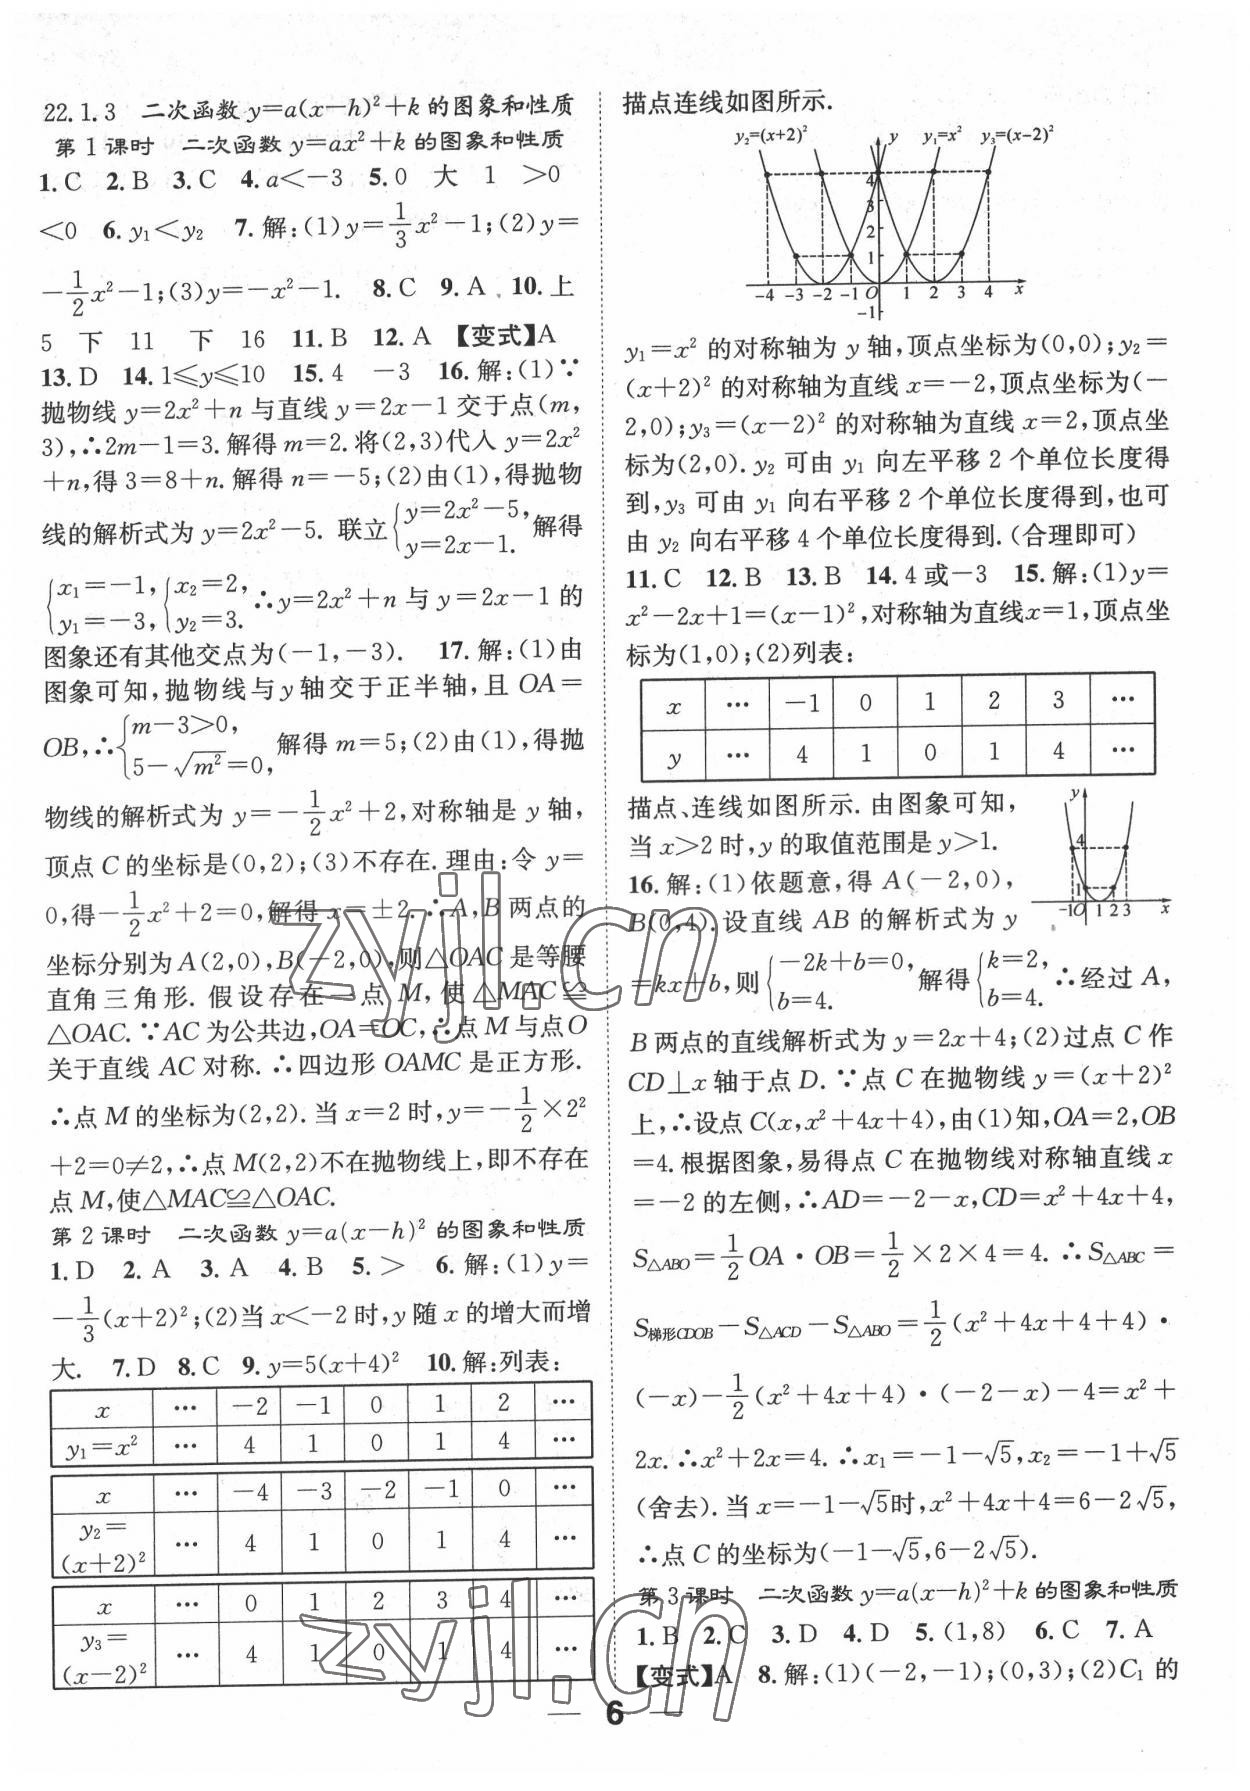 22.1.3 二次函数 y=a(x-h)²+k 的图象和性质
第1课时 二次函数 y=ax²+k 的图象和性质
1.C 2.B 3.C 4.a<-3 5.0 大 1 >0
<0 6.y₁<y₂ 7.解:(1)y=1/3x²-1;(2)y=
-1/2x²-1;(3)y=-x²-1. 8.C 9.A 10.上
5 下 11 下 16 11.B 12.A 【变式】A
13.D 14.1≤y≤10 15.4 -3 16.解:(1)∵
抛物线 y=2x²+n 与直线 y=2x-1 交于点(m,
3),∴2m-1=3.解得 m=2.将(2,3)代入 y=2x²
+n,得 3=8+n.解得 n=-5;(2)由(1),得抛物
线的解析式为 y=2x²-5. 联立{y=2x²-5, y=2x-1. 解得
{x₁=-1, y₁=-3, {x₂=2, y₂=3. ∴y=2x²+n 与 y=2x-1 的
图象还有其他交点为(-1,-3). 17.解:(1)由
图象可知,抛物线与 y 轴交于正半轴,且 OA=
OB,∴{m-3>0, 5-√m²=0, 解得 m=5;(2)由(1),得抛
物线的解析式为 y=-1/2x²+2,对称轴是 y 轴,
顶点 C 的坐标是(0,2);(3)不存在.理由:令 y=
0,得-1/2x²+2=0,解得 x=±2.∴A,B 两点的
坐标分别为 A(2,0),B(-2,0),则△OAC 是等腰
直角三角形.假设存在一点 M,使△MAC≌
△OAC.∵AC 为公共边,OA=OC,∴点 M 与点 O
关于直线 AC 对称.∴四边形 OAMC 是正方形.
∴点 M 的坐标为(2,2).当 x=2 时,y=-1/2×2²
+2=0≠2,∴点 M(2,2)不在抛物线上,即不存在
点 M,使△MAC≌△OAC.
第2课时 二次函数 y=a(x-h)² 的图象和性质
1.D 2.A 3.A 4.B 5.> 6.解:(1)y=
-1/3(x+2)²;(2)当 x<-2 时,y 随 x 的增大而增
大. 7.D 8.C 9.y=5(x+4)² 10.解:列表:
x … -2 -1 0 1 2 …
y₁=x² … 4 1 0 1 4 …
x … -4 -3 -2 -1 0 …
y₂=(x+2)² … 4 1 0 1 4 …
x … 0 1 2 3 4 …
y₃=(x-2)² … 4 1 0 1 4 …
描点连线如图所示.
y₂=(x+2)² y y₁=x² y₃=(x-2)²
4
3
2
1
-4 -3 -2 -1 O 1 2 3 4 x
-1
y₁=x² 的对称轴为 y 轴,顶点坐标为(0,0);y₂=
(x+2)² 的对称轴为直线 x=-2,顶点坐标为(-
2,0);y₃=(x-2)² 的对称轴为直线 x=2,顶点坐
标为(2,0).y₂ 可由 y₁ 向左平移 2 个单位长度得
到,y₃ 可由 y₁ 向右平移 2 个单位长度得到,也可
由 y₂ 向右平移 4 个单位长度得到.(合理即可)
11.C 12.B 13.B 14.4 或-3 15.解:(1)y=
x²-2x+1=(x-1)²,对称轴为直线x=1,顶点坐
标为(1,0);(2)列表:
x … -1 0 1 2 3 …
y … 4 1 0 1 4 …
描点、连线如图所示.由图象可知,
当 x>2 时,y 的取值范围是 y>1.
y
4
1
-1 O 1 2 3 x
16.解:(1)依题意,得 A(-2,0),
B(0,4).设直线 AB 的解析式为 y
=kx+b,则{-2k+b=0, b=4. 解得{k=2, b=4. ∴经过 A,
B 两点的直线解析式为 y=2x+4;(2)过点 C 作
CD⊥x 轴于点 D.∵点 C 在抛物线 y=(x+2)²
上,∴设点 C(x,x²+4x+4),由(1)知,OA=2,OB
=4.根据图象,易得点 C 在抛物线对称轴直线 x
=-2 的左侧,∴AD=-2-x,CD=x²+4x+4,
S△ABO=1/2OA·OB=1/2×2×4=4.∴S△ABC=
S梯形CDOB-S△ACD-S△ABO=1/2(x²+4x+4+4)·
(-x)-1/2(x²+4x+4)·(-2-x)-4=x²+
2x.∴x²+2x=4.∴x₁=-1-√5,x₂=-1+√5
(舍去).当 x=-1-√5时,x²+4x+4=6-2√5,
∴点 C 的坐标为(-1-√5,6-2√5).
第3课时 二次函数 y=a(x-h)²+k 的图象和性质
1.B 2.C 3.D 4.D 5.(1,8) 6.C 7.A
【变式】A 8.解:(1)(-2,-1);(0,3);(2)C₁ 的
6
zyjl.cn
zyjl.cn